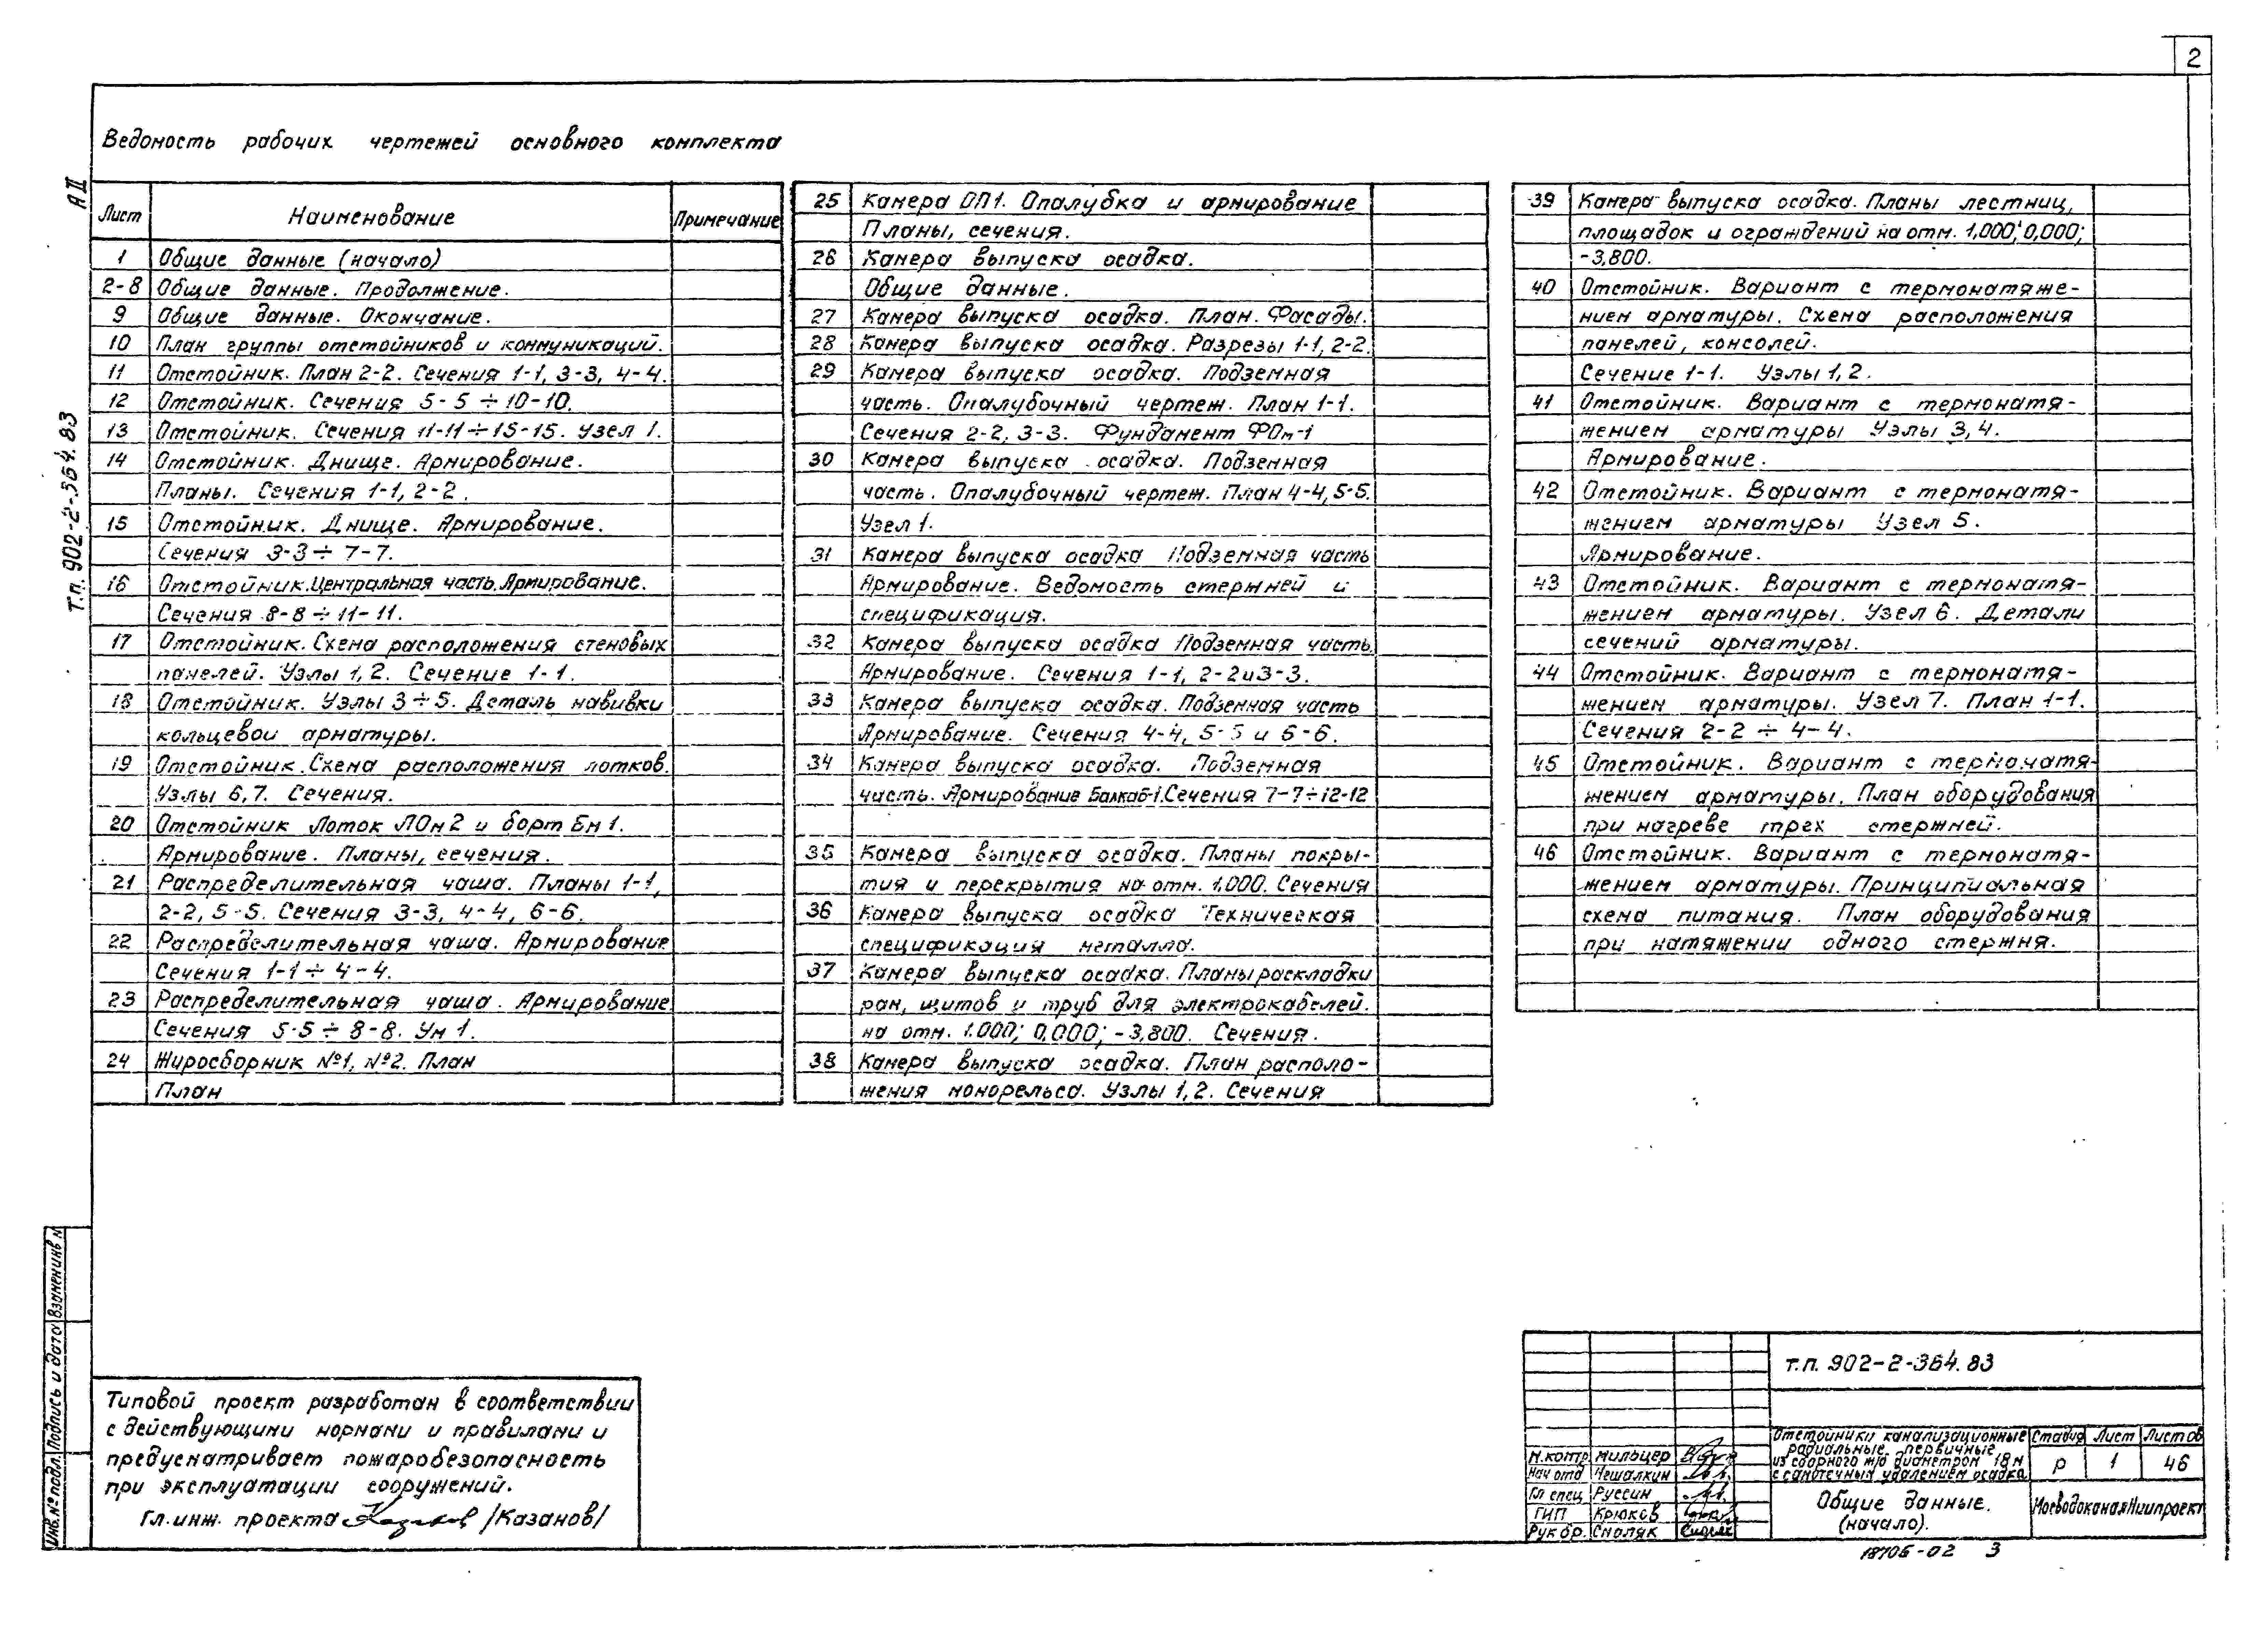 2
Ведомость рабочих чертежей основного комплекта
АII
Т.п. 902-2-364.83
Лист Наименование Примечание
1 Общие данные (начало)
2-8 Общие данные. Продолжение.
9 Общие данные. Окончание.
10 План группы отстойников и коммуникаций.
11 Отстойник. План 2-2. Сечения 1-1, 3-3, 4-4.
12 Отстойник. Сечения 5-5 ÷ 10-10.
13 Отстойник. Сечения 11-11 ÷ 15-15. Узел 1.
14 Отстойник. Днище. Армирование.
Планы. Сечения 1-1, 2-2.
15 Отстойник. Днище. Армирование.
Сечения 3-3 ÷ 7-7.
16 Отстойник. Центральная часть. Армирование.
Сечения 8-8 ÷ 11-11.
17 Отстойник. Схема расположения стеновых
панелей. Узлы 1, 2. Сечение 1-1.
18 Отстойник. Узлы 3 ÷ 5. Деталь навивки
кольцевой арматуры.
19 Отстойник. Схема расположения лотков.
Узлы 6, 7. Сечения.
20 Отстойник Лоток ЛОм2 и борт Бм1.
Армирование. Планы, сечения.
21 Распределительная чаша. Планы 1-1,
2-2, 5-5. Сечения 3-3, 4-4, 6-6.
22 Распределительная чаша. Армирование
Сечения 1-1 ÷ 4-4.
23 Распределительная чаша. Армирование
Сечения 5-5 ÷ 8-8. Ум 1.
24 Жиросборник №1, №2. План
План
25 Камера ОП1. Опалубка и армирование
Планы, сечения.
26 Камера выпуска осадка.
Общие данные.
27 Камера выпуска осадка. План. Фасады.
28 Камера выпуска осадка. Разрезы 1-1, 2-2.
29 Камера выпуска осадка. Подземная
часть. Опалубочный чертеж. План 1-1.
Сечения 2-2, 3-3. Фундамент ФОм-1
30 Камера выпуска осадка. Подземная
часть. Опалубочный чертеж. План 4-4, 5-5.
Узел 1.
31 Камера выпуска осадка Подземная часть
Армирование. Ведомость стержней и
спецификация.
32 Камера выпуска осадка Подземная часть
Армирование. Сечения 1-1, 2-2 и 3-3.
33 Камера выпуска осадка. Подземная часть
Армирование. Сечения 4-4, 5-5 и 6-6.
34 Камера выпуска осадка. Подземная
часть. Армирование Балка Б-1. Сечения 7-7 ÷ 12-12
35 Камера выпуска осадка. Планы покры-
тия и перекрытия на отм. 1.000. Сечения
36 Камера выпуска осадка Техническая
спецификация металла.
37 Камера выпуска осадка. Планы раскладки
рам, щитов и труб для электрокабелей.
на отм. 1.000; 0,000; -3,800. Сечения.
38 Камера выпуска осадка. План располо-
жения монорельса. Узлы 1, 2. Сечения
39 Камера выпуска осадка. Планы лестниц,
площадок и ограждений на отм. 1,000; 0,000;
-3,800.
40 Отстойник. Вариант с термонатяже-
нием арматуры. Схема расположения
панелей, консолей.
Сечение 1-1. Узлы 1, 2.
41 Отстойник. Вариант с термонатя-
жением арматуры Узлы 3, 4.
Армирование.
42 Отстойник. Вариант с термонатя-
жением арматуры Узел 5.
Армирование.
43 Отстойник. Вариант с термонатя-
жением арматуры. Узел 6. Детали
сечений арматуры.
44 Отстойник. Вариант с термонатя-
жением арматуры. Узел 7. План 1-1.
Сечения 2-2 ÷ 4-4.
45 Отстойник. Вариант с термонатя-
жением арматуры. План оборудования
при нагреве трех стержней.
46 Отстойник. Вариант с термонатя-
жением арматуры. Принципиальная
схема питания. План оборудования
при натяжении одного стержня.
Инв. № подл. Подпись и дата Взамен инв №
Типовой проект разработан в соответствии
с действующими нормами и правилами и
предусматривает пожаробезопасность
при эксплуатации сооружений.
Гл. инж. проекта /Казанов/
т.п. 902-2-364.83
Н.контр Мильцер
Нач отд Чешалкин
Гл спец Руссин
ГИП Крюков
Рук бр. Смоляк
Отстойники канализационные
радиальные первичные
из сборного ж/б диаметром 18 м
с самотечным удалением осадка
Стадия Лист Листов
Р 1 46
Общие данные.
(начало).
МосводоканалНиипроект
18705-02 3